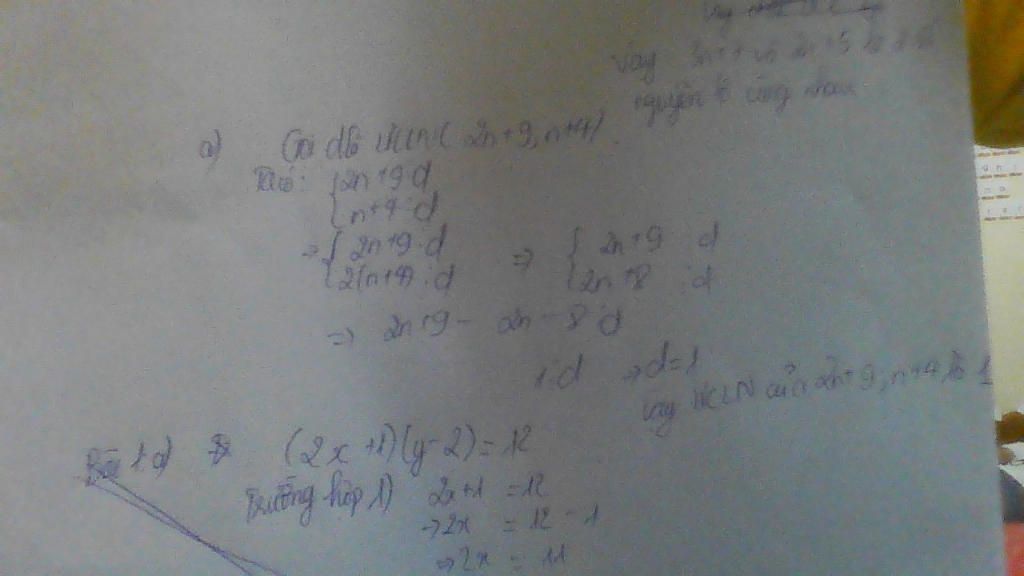 Vậy 3n+ và 2n+5 là 2 số
nguyên tố cùng nhau
a) Gọi d là ƯCLN( 2n+9, n+4)
Ta có: { 2n+9 ⋮ d
n+4 ⋮ d
=> { 2n+9 ⋮ d => { 2n+9 ⋮ d
2(n+4) ⋮ d 2n+8 ⋮ d
=> 2n+9 - 2n - 8 ⋮ d
1 ⋮ d => d=1
Vậy ƯCLN của 2n+9, n+4 là 1
Bài 1 a) (2x+1)(y-2)=12
Trường hợp 1) 2x+1 = 12
→ 2x = 12 - 1
=> 2x = 11